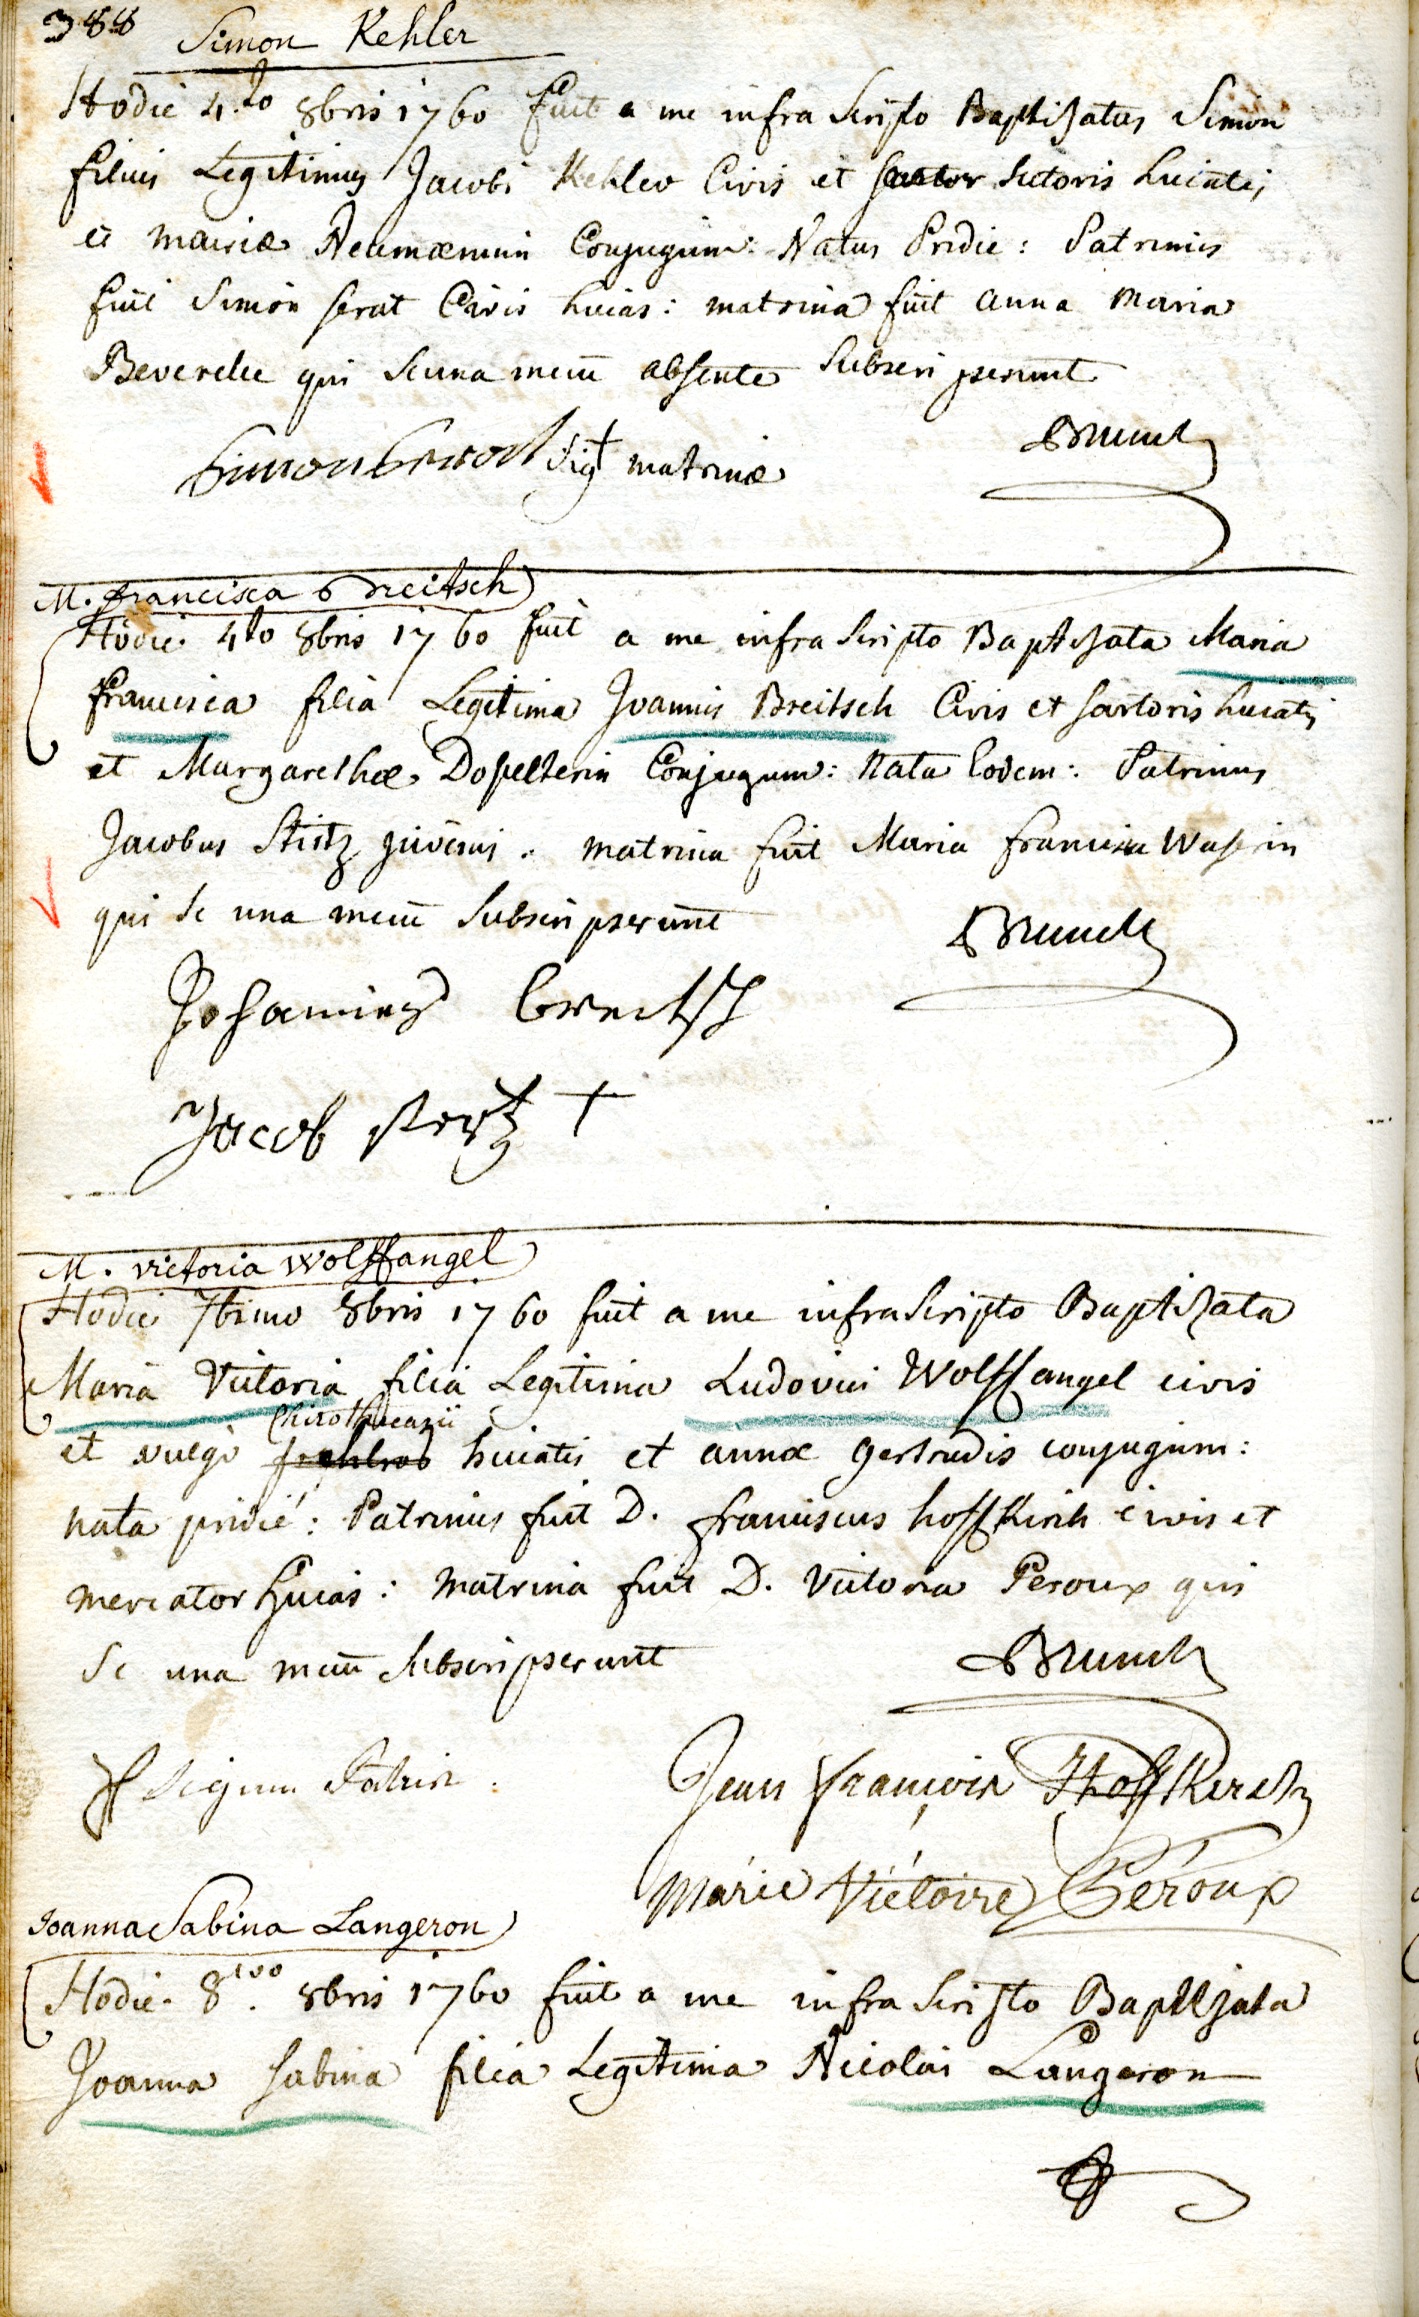 388
Simon Kehler
Hodie 4.to 8bris 1760 fuit a me infra Scripto Baptisatus Simon
filius Legitimus Jacobi Kehler Civis et sartor sutoris huiatis
et mariæ Neumænnin Conjugum: Natus Pridie: Patrinus
fuit Simon serat Civis huias: matrina fuit anna maria
Beverelee qui se una mecū absente Subscri pserunt
Brunck
Sig † matrinæ
M. francisca Breitsch
Hodie 4to 8bris 1760 fuit a me infra Scripto Baptisata Maria
francisca filia Legitima Joannis Breitsch Civis et sartoris huiatis
et Margarethæ Dopelterin Conjugum: Nata Eodem: Patrinus
Jacobus Stirtz juvenis: matrina fuit Maria francisca Waserin
qui se una mecū Subscri pserunt
Brunck
Johannes breitsch
Jacob stirtz +
M. victoria Wolffangel
Hodie 7timo 8bris 1760 fuit a me infra Scripto Baptisata
Maria Victoria filia Legitima Ludovici Wolffangel civis
Chirothecarii
et vulgo huiatis et annæ gertrudis conjugum:
nata pridie: Patrinus fuit D. franciscus hoffkirch civis et
mercator huias: matrina fuit D. Victoria Peroux qui
se una mecū Subscripserunt
Brunck
Signum Patris.
Jean françois Hoffkirch
Marie Victoire Péroux
Joanna Sabina Langeron
Hodie 8.vo 8bris 1760 fuit a me infra Scripto Baptisata
Joanna sabina filia Legitima Nicolai Langeron